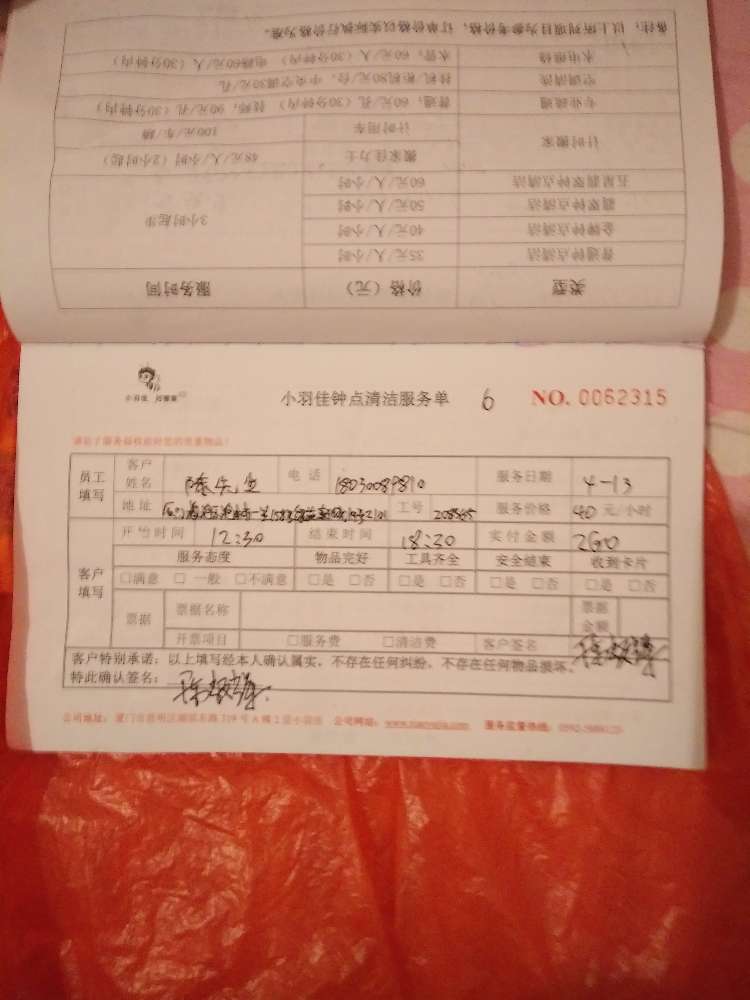 备注：以上所列项目为参考价格，订单价格以实际执行价格为准。
水电维修 水管：60元/人（30分钟内） 电路60元/人（30分钟内）
空调清洗 挂机 柜机80元/台，中央空调30元/孔
专业疏通 普通：60元/孔（30分钟内） 特殊：90元/孔（30分钟内）
计时搬家 计时用车 100元/车/趟
搬家佳力士 48元/人/小时（2小时起）
五星翡翠钟点清洁 60元/人/小时
翡翠钟点清洁 50元/人/小时
金牌钟点清洁 40元/人/小时
普通钟点清洁 35元/人/小时
3小时起步
类型 价格（元） 服务时间
小羽佳 小羽佳钟点清洁服务单 6 NO. 0062315
员工填写 客户姓名 陈先生 电话 18030089810 服务日期 4-13
地址 工号 208845 服务价格 40 元/小时
客户填写 开始时间 12:30 结束时间 18:30 实付金额 260
服务态度 物品完好 工具齐全 安全结束 收到卡片
□满意 □一般 □不满意 □是 □否 □是 □否 □是 □否 □是 □否
票据 票据名称 票据金额
开票项目 □服务费 □清洁费 客户签名
客户特别承诺：以上填写经本人确认属实，不存在任何纠纷，不存在任何物品损坏。
特此确认签名：
公司地址： 公司网站： 服务监督热线：